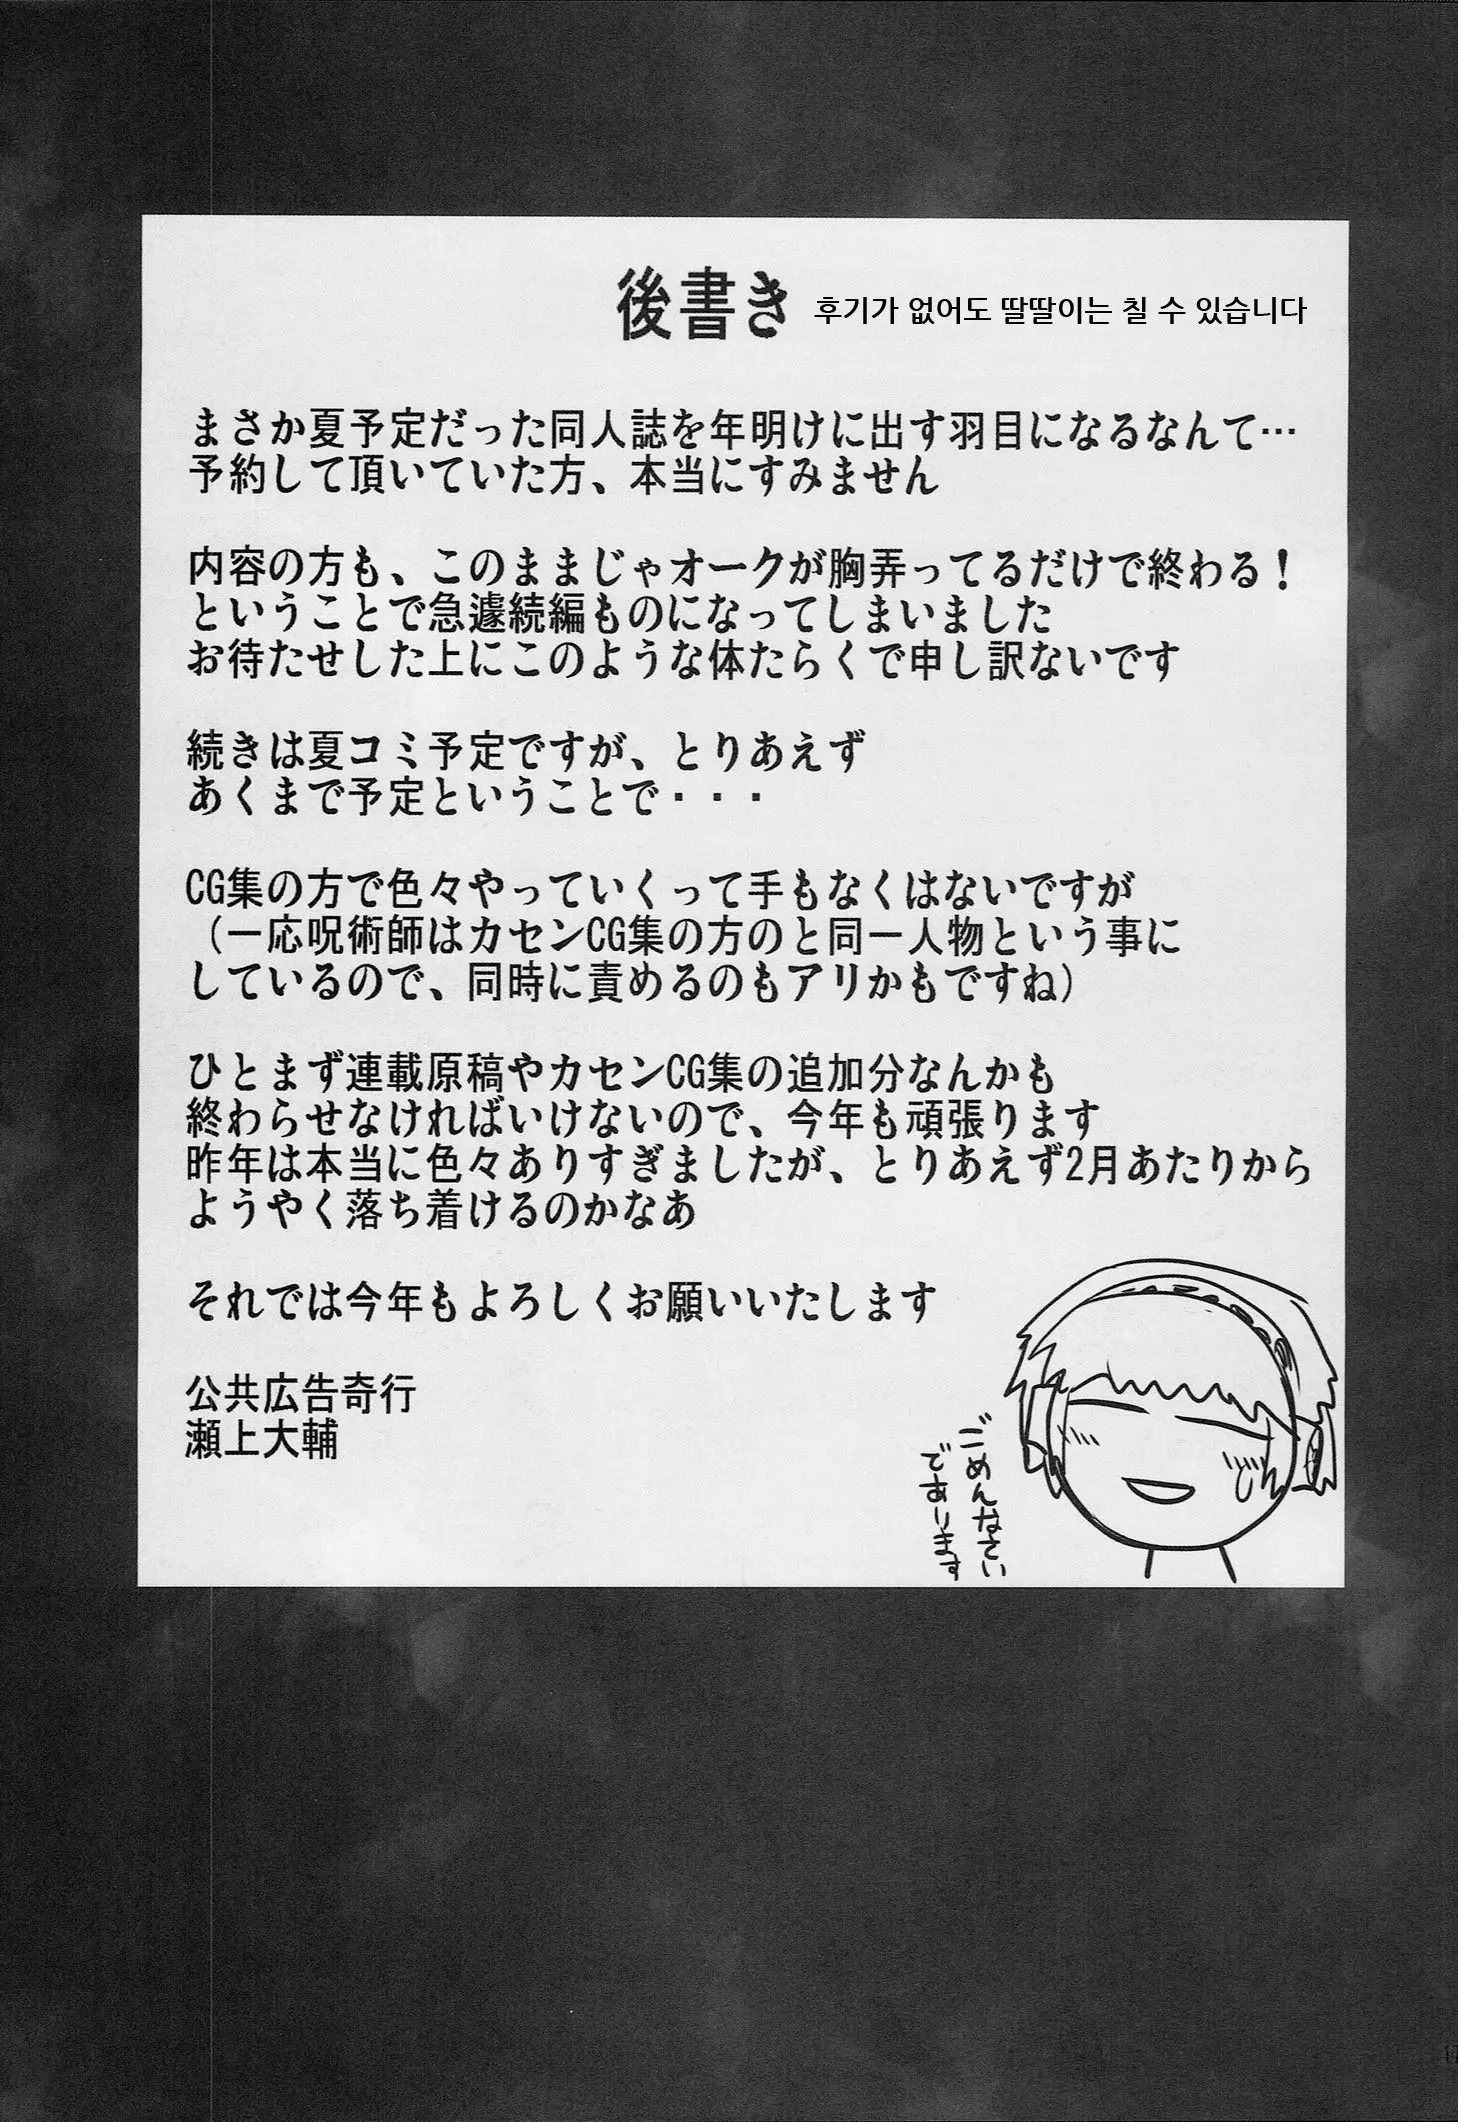 後書き 후기가 없어도 딸딸이는 칠 수 있습니다
まさか夏予定だった同人誌を年明けに出す羽目になるなんて…
予約して頂いていた方、本当にすみません
内容の方も、このままじゃオークが胸弄ってるだけで終わる！
ということで急遽続編ものになってしまいました
お待たせした上にこのような体たらくで申し訳ないです
続きは夏コミ予定ですが、とりあえず
あくまで予定ということで・・・
CG集の方で色々やっていくって手もなくはないですが
（一応呪術師はカセンCG集の方のと同一人物という事に
しているので、同時に責めるのもアリかもですね）
ひとまず連載原稿やカセンCG集の追加分なんかも
終わらせなければいけないので、今年も頑張ります
昨年は本当に色々ありすぎましたが、とりあえず2月あたりから
ようやく落ち着けるのかなあ
それでは今年もよろしくお願いいたします
公共広告奇行
瀬上大輔
ごめんなさい
であります
17